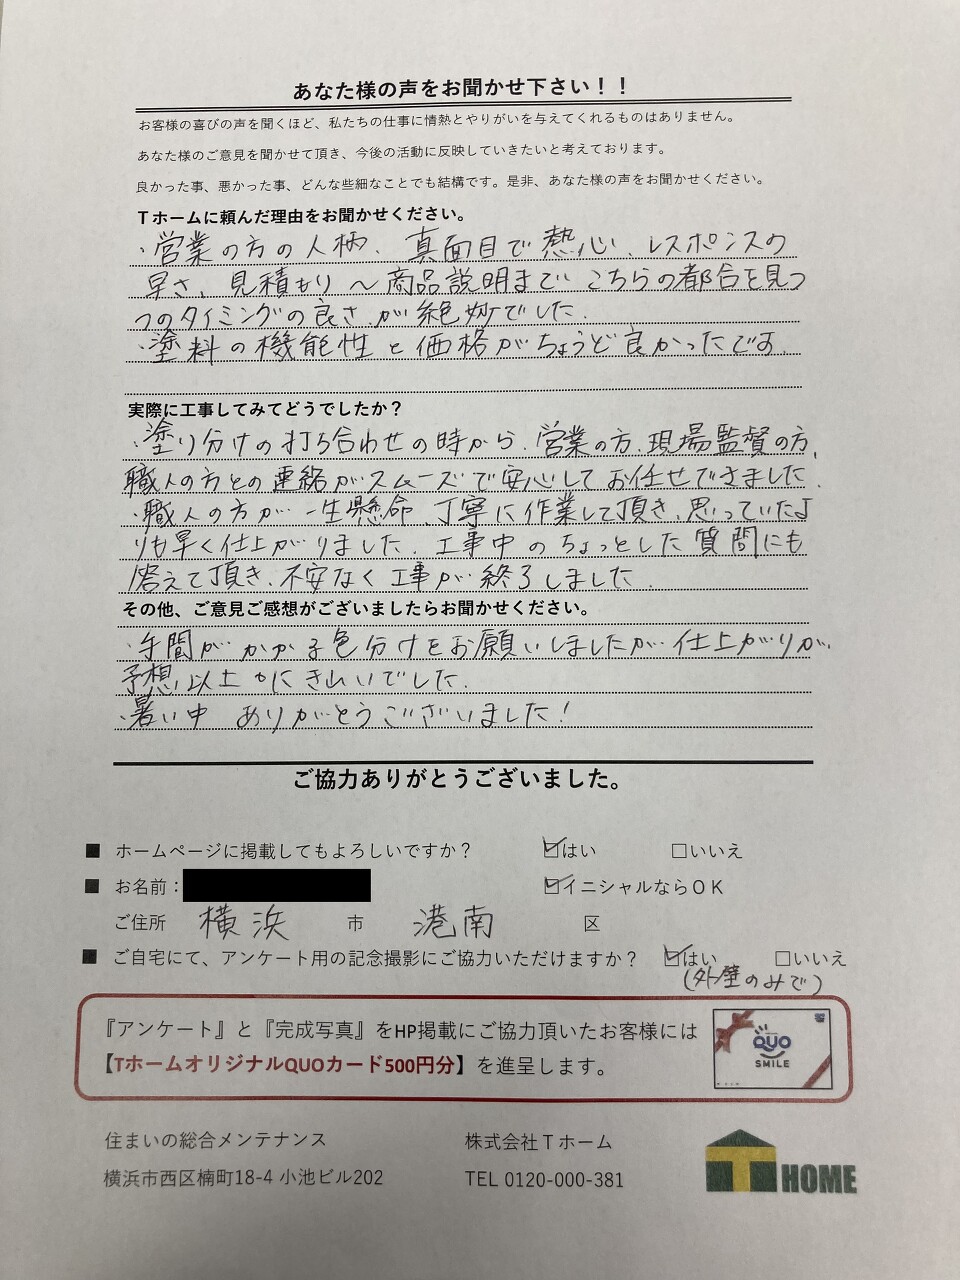 あなた様の声をお聞かせ下さい！！
お客様の喜びの声を聞くほど、私たちの仕事に情熱とやりがいを与えてくれるものはありません。
あなた様のご意見を聞かせて頂き、今後の活動に反映していきたいと考えております。
良かった事、悪かった事、どんな些細なことでも結構です。是非、あなた様の声をお聞かせください。
Tホームに頼んだ理由をお聞かせください。
・営業の方の人柄、真面目で熱心、レスポンスの
早さ、見積もり～商品説明までこちらの都合を見つ
つのタイミングの良さが絶妙でした。
・塗料の機能性と価格がちょうど良かったです。
実際に工事してみてどうでしたか？
・塗り分けの打ち合わせの時から、営業の方、現場監督の方、
職人の方との連絡がスムーズで安心してお任せできました。
・職人の方が一生懸命、丁寧に作業して頂き、思っていたよ
りも早く仕上がりました。工事中のちょっとした質問にも
答えて頂き、不安なく工事が終了しました。
その他、ご意見ご感想がございましたらお聞かせください。
・手間がかかる色分けをお願いしましたが、仕上がりが、
予想以上にきれいでした。
・暑い中 ありがとうございました！
ご協力ありがとうございました。
■ ホームページに掲載してもよろしいですか？ ☑はい □いいえ
■ お名前： ☑イニシャルならＯＫ
ご住所 横浜 市 港南 区
■ ご自宅にて、アンケート用の記念撮影にご協力いただけますか？ ☑はい □いいえ
(外壁のみで)
『アンケート』と『完成写真』をHP掲載にご協力頂いたお客様には
【TホームオリジナルQUOカード500円分】を進呈します。
QUO
SMILE
住まいの総合メンテナンス 株式会社Ｔホーム
横浜市西区楠町18-4 小池ビル202 TEL 0120-000-381
T HOME